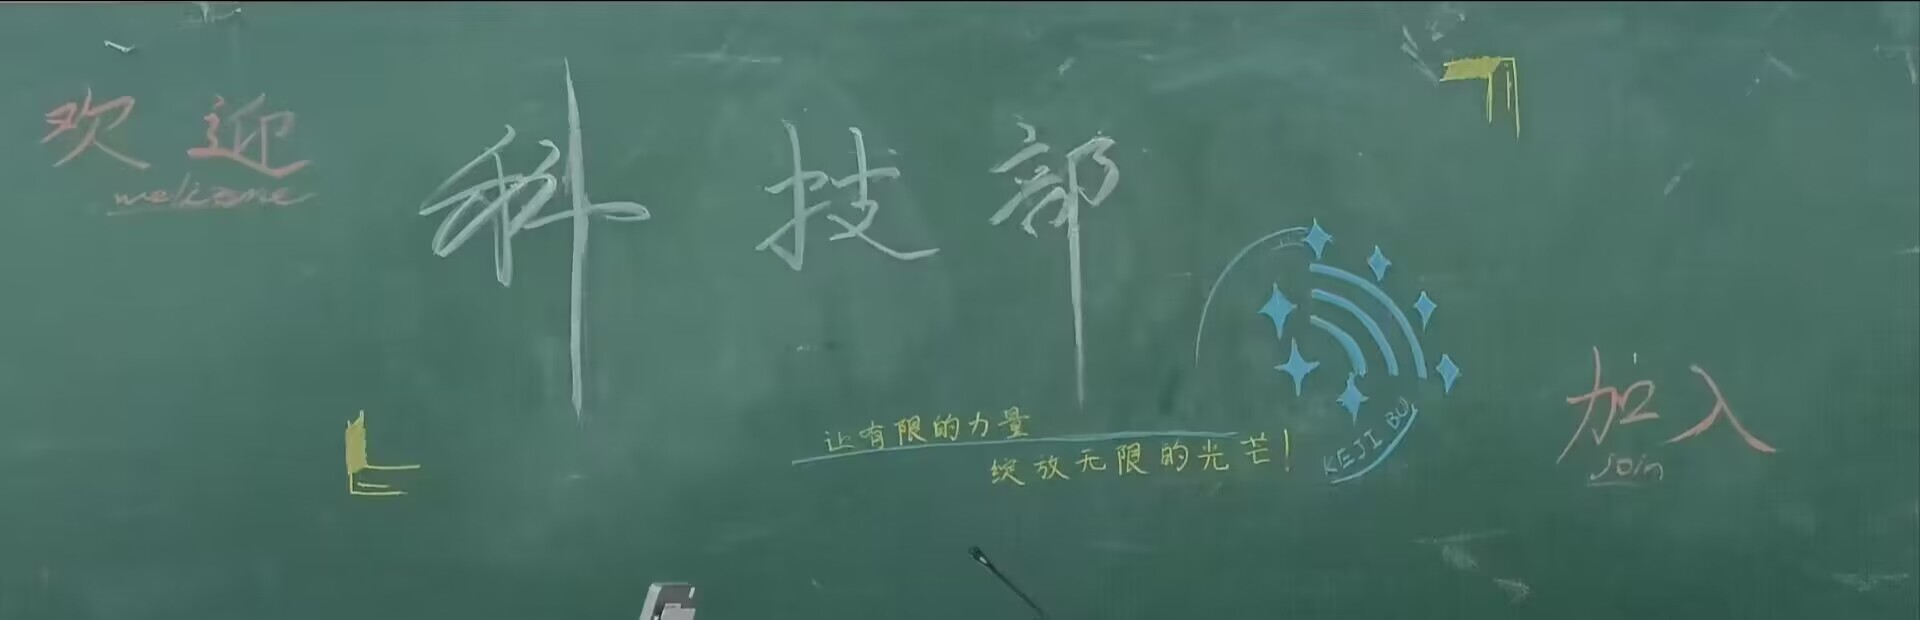 欢迎
welcome
科技部
让有限的力量
绽放无限的光芒！
KEJI BU
加入
join